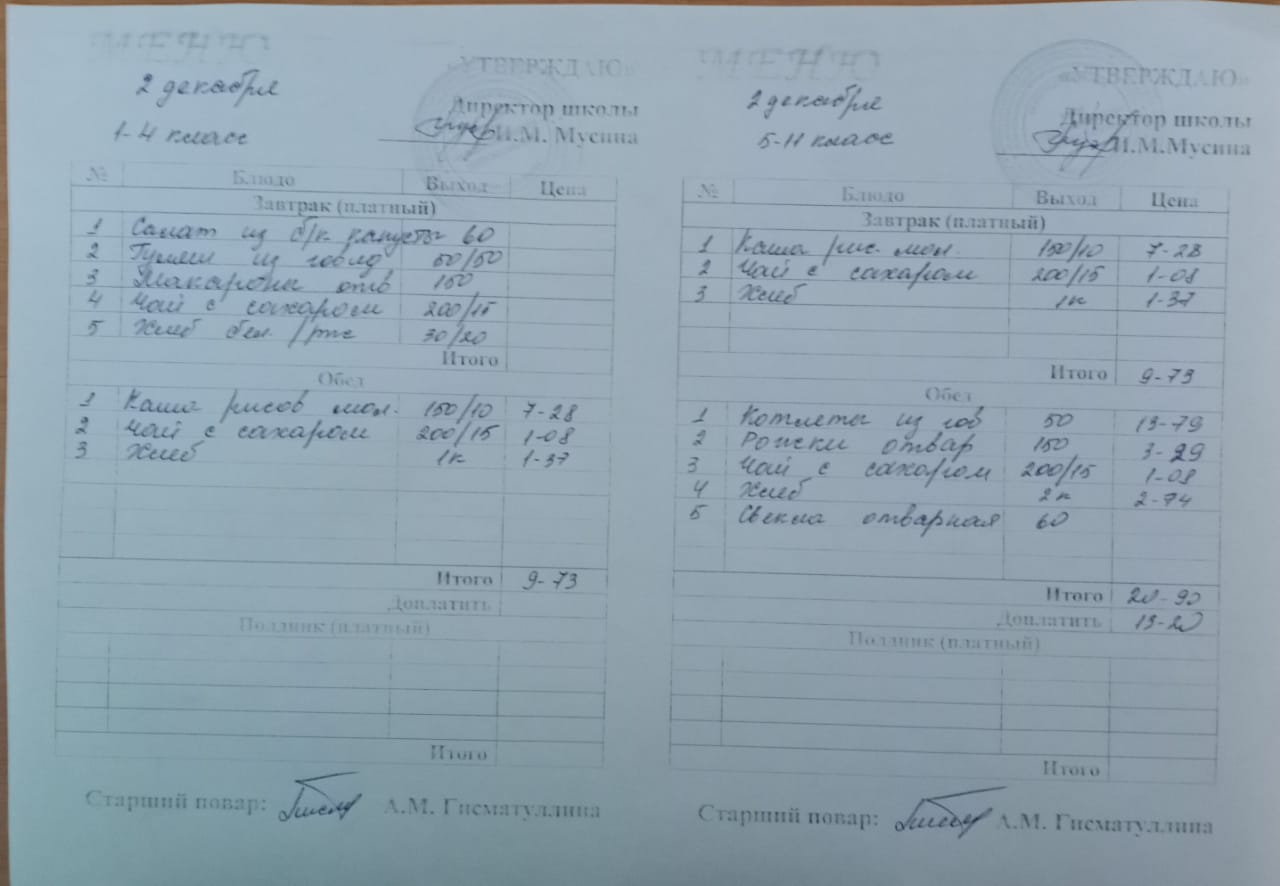 МЕНЮ
«УТВЕРЖДАЮ»
2 декабря
Директор школы
1-4 класс
И.М. Мусина
№ Блюдо Выход Цена
Завтрак (платный)
1 Салат из б/к капусты 60
2 Гуляш из говяд 50/50
3 Макароны отв 150
4 Чай с сахаром 200/15
5 Хлеб бел. /рж 30/20
Итого
Обед
1 Каша рисов мол. 150/10 7-28
2 Чай с сахаром 200/15 1-08
3 Хлеб 1к 1-37
Итого 9-73
Доплатить
Полдник (платный)
Итого
Старший повар: А.М. Гисматуллина
МЕНЮ
«УТВЕРЖДАЮ»
2 декабря
Директор школы
5-11 класс
И.М.Мусина
№ Блюдо Выход Цена
Завтрак (платный)
1 Каша рис. мол. 150/10 7-28
2 Чай с сахаром 200/15 1-08
3 Хлеб 1к 1-37
Итого 9-73
Обед
1 Котлеты из гов 50 13-79
2 Рожки отвар 150 3-29
3 Чай с сахаром 200/15 1-08
4 Хлеб 2к 2-74
5 Свекла отварная 60
Итого 20-90
Доплатить 13-20
Полдник (платный)
Итого
Старший повар: А.М. Гисматуллина